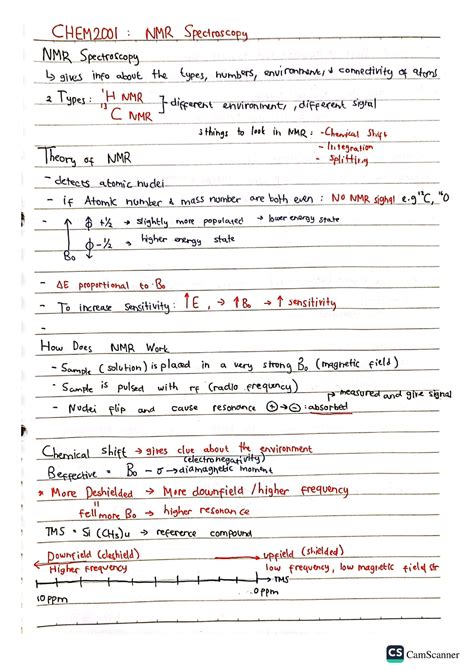 CHEM2001 : NMR Spectroscopy
NMR Spectroscopy
↳ gives info about the types, numbers, environment, & connectivity of atoms
2 Types : ¹H NMR
¹³C NMR
different environment, different signal
3 things to look in NMR : - Chemical Shift
- Integration
- Splitting
Theory of NMR
- detects atomic nuclei
- if Atomic number & mass number are both even : NO NMR signal e.g ¹²C, ¹⁶O
+½ → slightly more populated → lower energy state
-½ → higher energy state
B₀
- ΔE proportional to B₀
- To increase sensitivity : ↑E , → ↑B₀ → ↑ sensitivity
-
How Does NMR Work
- Sample (solution) is placed in a very strong B₀ (magnetic field)
- Sample is pulsed with rf (radio frequency)
→ measured and give signal
- Nuclei flip and cause resonance ⊕→⊖ : absorbed
Chemical shift → gives clue about the environment
(electronegativity)
B effective = B₀ - σ → diamagnetic moment
* More Deshielded → More downfield / higher frequency
fell more B₀ → higher resonance
TMS = Si(CH₃)4 → reference compound
Downfield (deshield)
upfield (shielded)
Higher frequency
low frequency, low magnetic field str
→ TMS
10 ppm
0 ppm
CS CamScanner